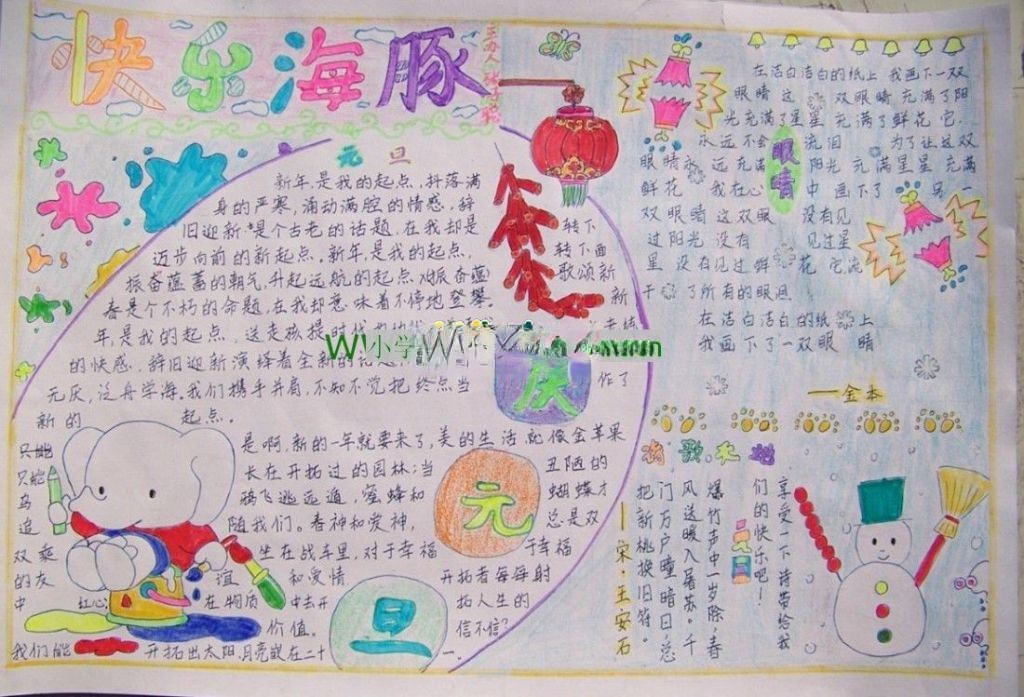 快乐海豚
主办人
元旦
新年是我的起点,抖落满
身的严寒,涌动满腔的情感,辞
旧迎新是个古老的话题,在我却是
迈步向前的新起点。新年是我的起点,
振奋蕴蓄的朝气,升起远航的起点
春是个不朽的命题,在我却意味着不停地登攀。
年是我的起点,送走孩提时代
的快感,辞旧迎新演绎着全新的
无厌,泛舟学海。我们携手并肩,不知不觉把终点当
作了
新的起点。
转下
转下面
歌颂新
新
W小学W
庆
元
旦
是啊,新的一年就要来了,美的生活,就像金苹果
只能
长在开拓过的园林;当丑陋的
乌鸦飞逃远遁,蜜蜂和蝴蝶才
追随我们。春神和爱神,总是双
双乘坐在战车里,对于幸福于幸福
的友谊和爱情开拓者每每射
中红心;在物质中去开拓人生的
价值。信不信?
我们能开拓出太阳、月亮嵌在二十一.
在洁白洁白的纸上 我画下一双
眼睛 这双眼睛 充满了阳
光 充满了星星 充满了鲜花 它
永远不会流泪 为了让这双
眼睛永远充满阳光 充满星星 充满
鲜花 我在心中画下了另一
双眼睛 这双眼没有见
过阳光 没有见过星
星 没有见过鲜花 它流
干了所有的眼泪
在洁白洁白的纸上
我画下了一双眼睛
眼睛
——金本
诗歌
享受一下诗带给我
们的快乐吧!
元旦
爆竹声中一岁除,春
风送暖入屠苏。千
门万户曈曈日,总
把新桃换旧符。
——宋·王安石